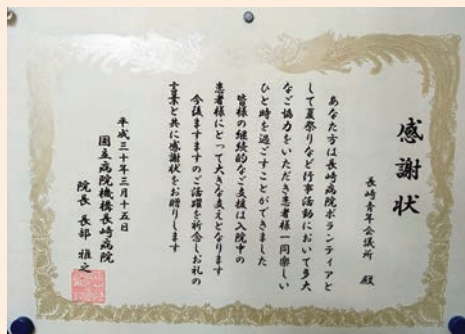 感謝状
長崎青年会議所 殿
あなた方は長崎病院ボランティアと
して夏祭りなど行事活動において多大
なご協力をいただき患者様一同楽しい
ひと時を過ごすことができました
皆様の継続的なご支援は入院中の
患者様にとって大きな支えとなります
今後ますますのご活躍を祈念しお礼の
言葉と共に感謝状をお贈りします
平成三十年三月十五日
国立病院機構長崎病院
院長 長部 雅之